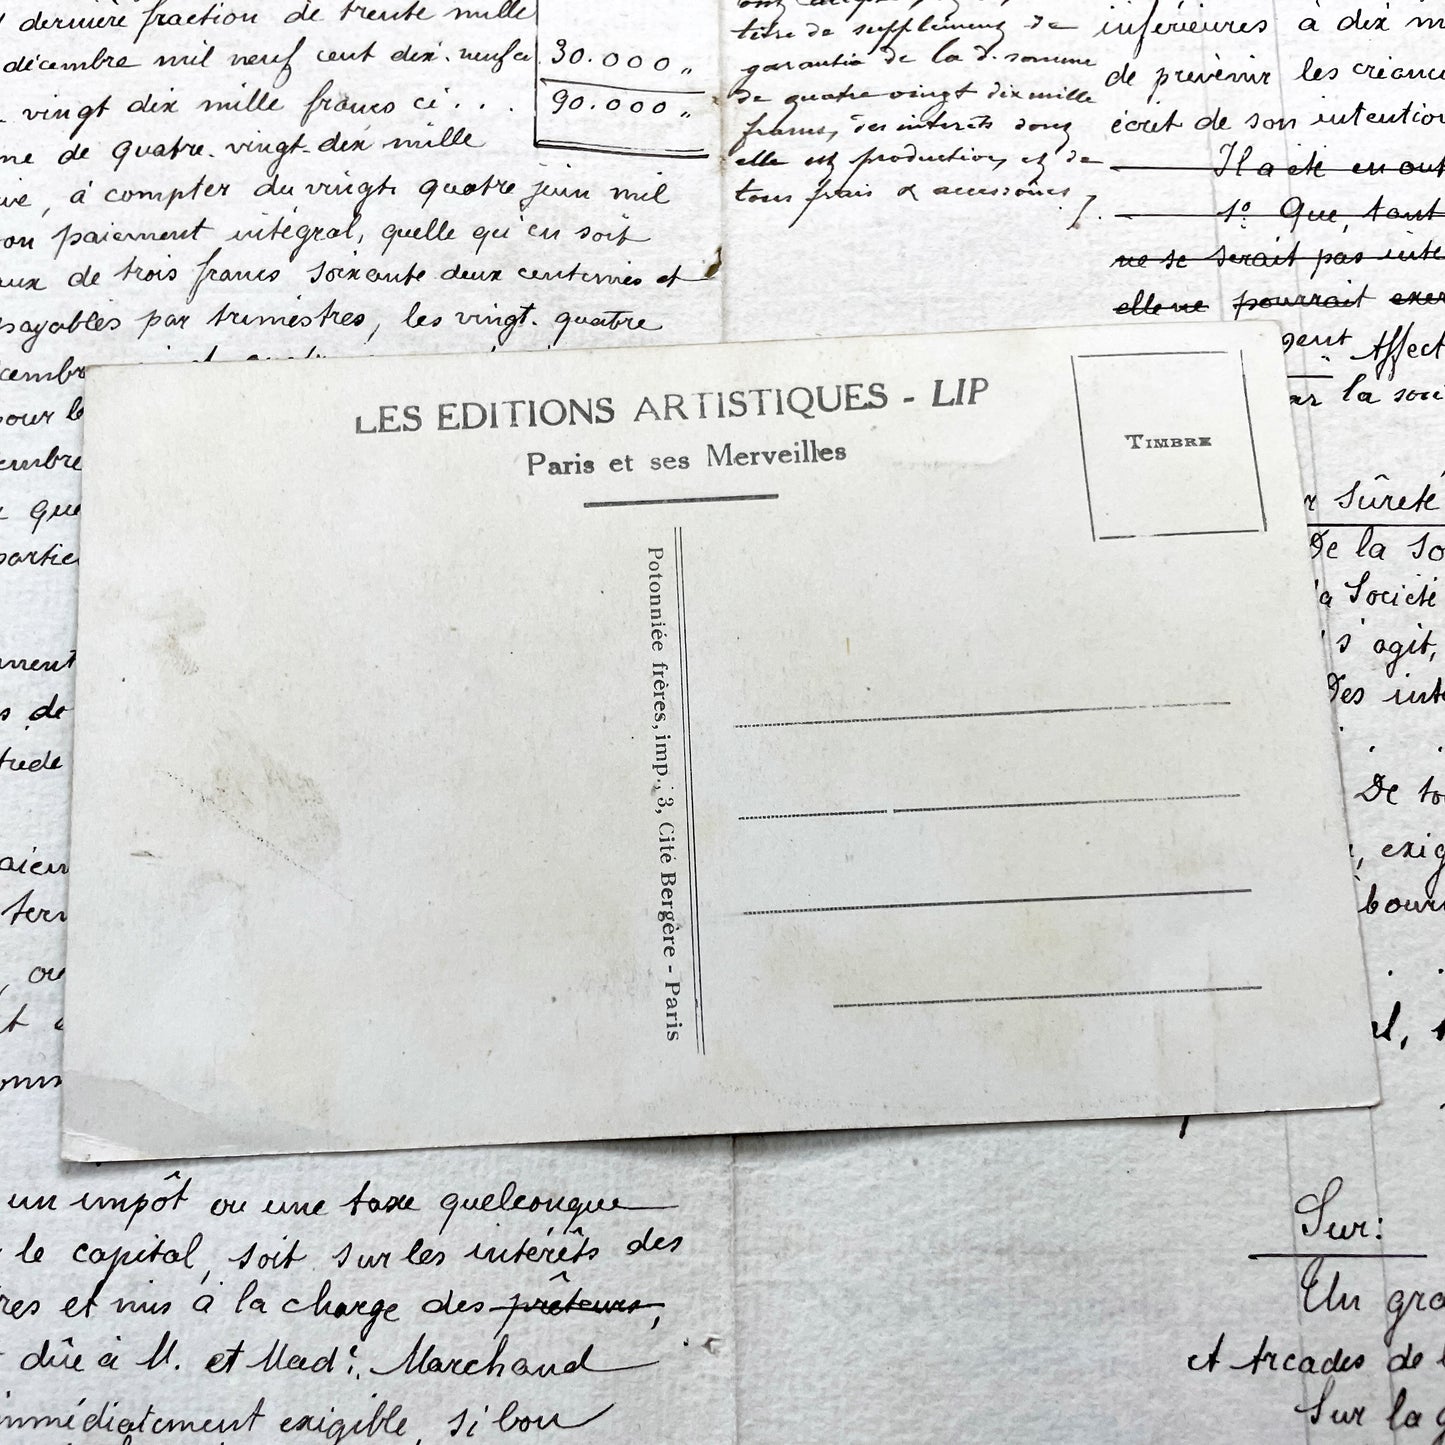 dernière fraction de trente mille
décembre mil neuf cent dix-neuf ci
30.000 „
vingt dix mille francs ci . . .
90.000 „
me de quatre-vingt-dix mille
à compter du vingt quatre juin mil
paiement intégral, quelle qu'en soit
aux de trois francs soixante deux centimes et
payables par trimestres, les vingt-quatre
titre de supplément de
garantie de la d. somme
de quatre vingt dix mille
francs, des intérêts dont
elle est productive, et de
tous frais & accessoires
inférieures à dix m
de prévenir les créanc
écrit de son intention
Il a été en out
1° Que, tant
ne se serait pas inte
elle ne pourrait exer
Affect
la soc
cembr
pour le
embre
que
partie
ument
de
LES EDITIONS ARTISTIQUES - LIP
Paris et ses Merveilles
TIMBRE
Potonniée frères, imp., 3, Cité Bergère - Paris
sûreté
De la So
la Société
s'agit,
Des inté
De to
, exig
bour
un impôt ou une taxe quelconque
le capital, soit sur les intérêts des
res et mis à la charge des prêteurs,
dûe à M. et Made. Marchand
immédiatement exigible, si bon
Sur:
Un gra
et Arcades de l
Sur la g